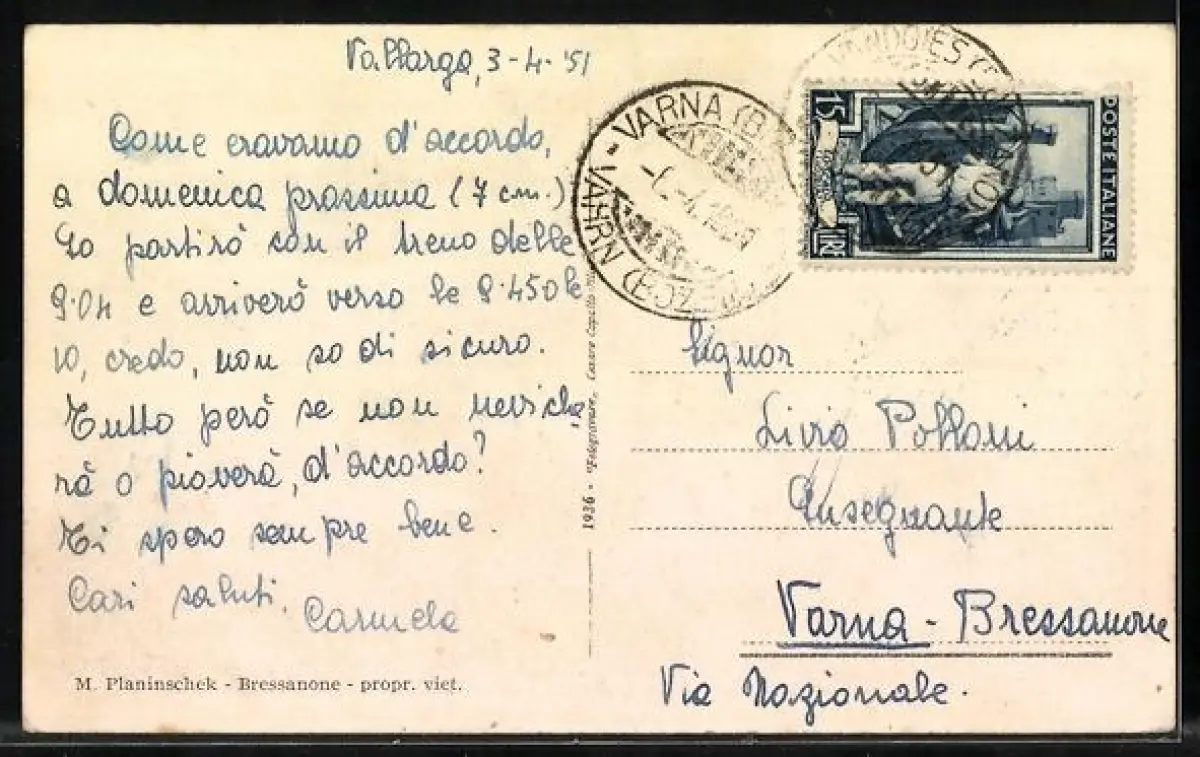 Vallarga, 3-4-'51
Come eravamo d'accordo,
a domenica prossima (7 c.m.)
Io partirò con il treno delle
9.04 e arriverò verso le 9.45 o le
10, credo, non so di sicuro.
Tutto però se non neviche
rà o pioverà, d'accordo?
Ti spero sempre bene.
Cari saluti.
Carmela
M. Planinschek - Bressanone - propr. viet.
1936 - "Fotogravure, Cesare Capello
VARNA (B
VAHRN (BOZ
VANDOIES
15
LIRE
POSTE ITALIANE
Signor
Livio
Insegnante
Varna - Bressanone
Via Nazionale.